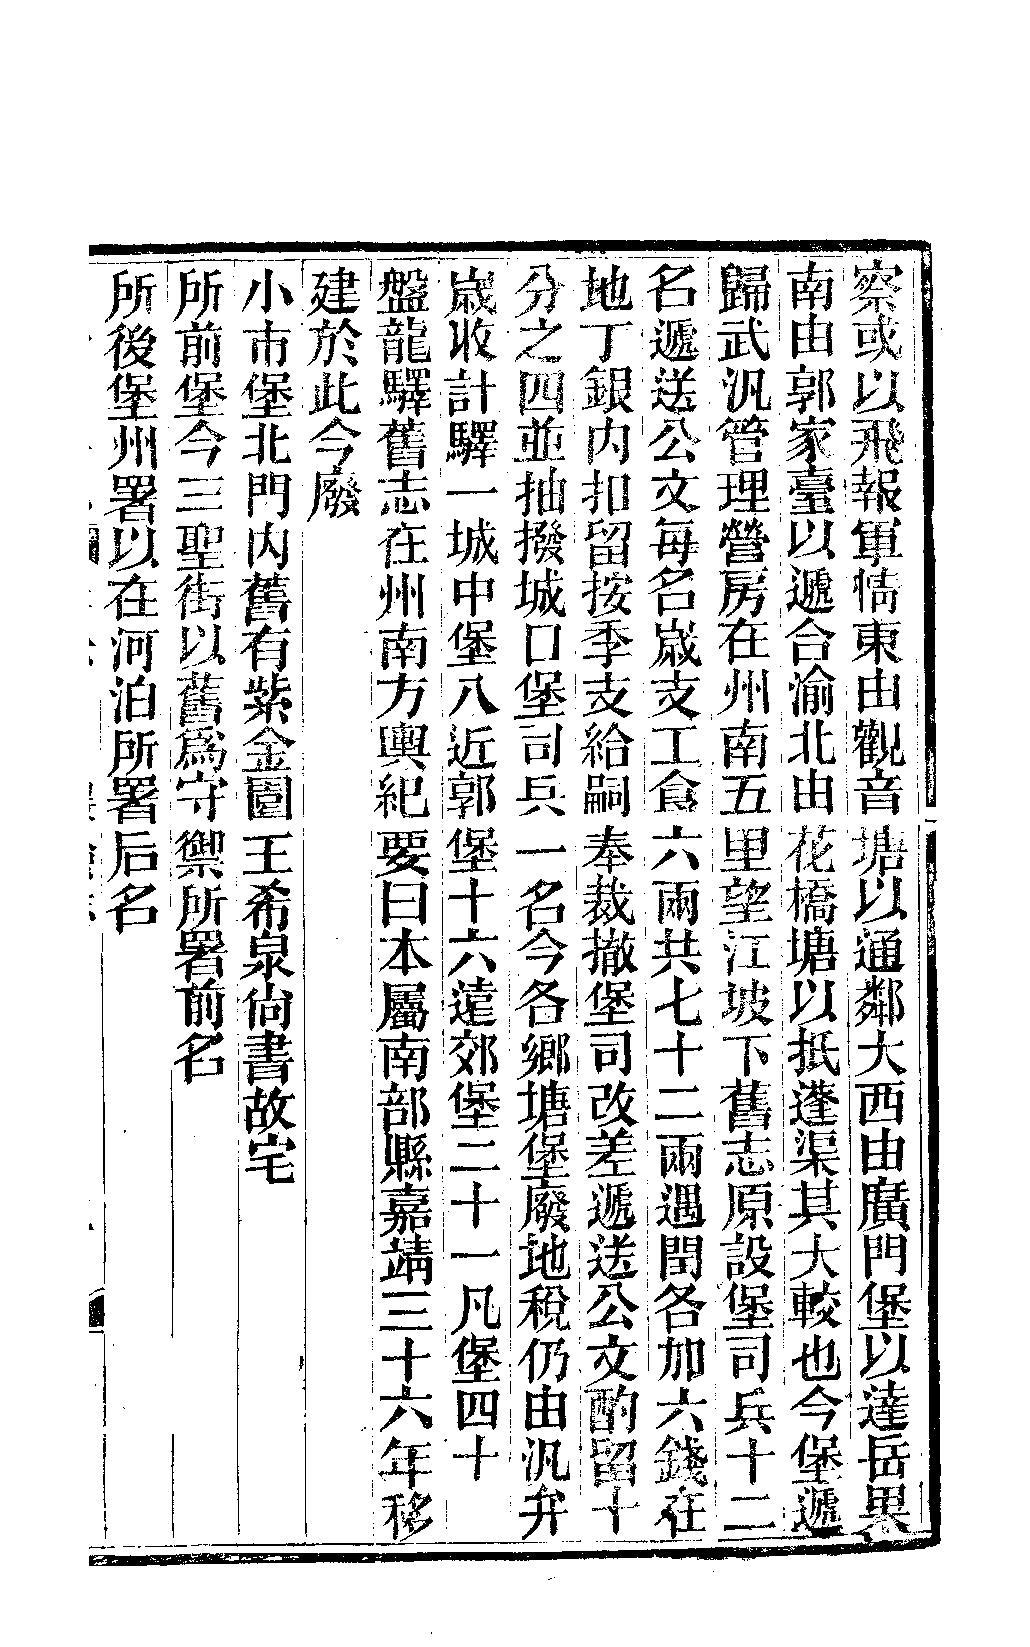 察或以飛報軍情東由觀音塘以通鄰大西由廣門堡以達岳果
南由郭家臺以遞合渝北由花橋塘以抵蓬渠其大較也今堡遞
歸武汛管理營房在州南五里望江坡下舊志原設堡司兵十二
名遞送公文每名嵗支工食六兩共七十二兩遇閏各加六錢在
地丁銀内扣留按季支給嗣奉裁撤堡司改差遞送公文酌留十
分之四並抽撥城口堡司兵一名今各鄉塘堡廢地稅仍由汛弁
嵗收計驛一城中堡八近郭堡十六遠郊堡二十一凡堡四十
盤龍驛舊志在州南方輿紀要曰本屬南部縣嘉靖三十六年移
建於此今廢
小市堡北門内舊有紫金園王希泉尙書故宅
所前堡今三聖街以舊爲守禦所署前名
所後堡州署以在河泊所署后名